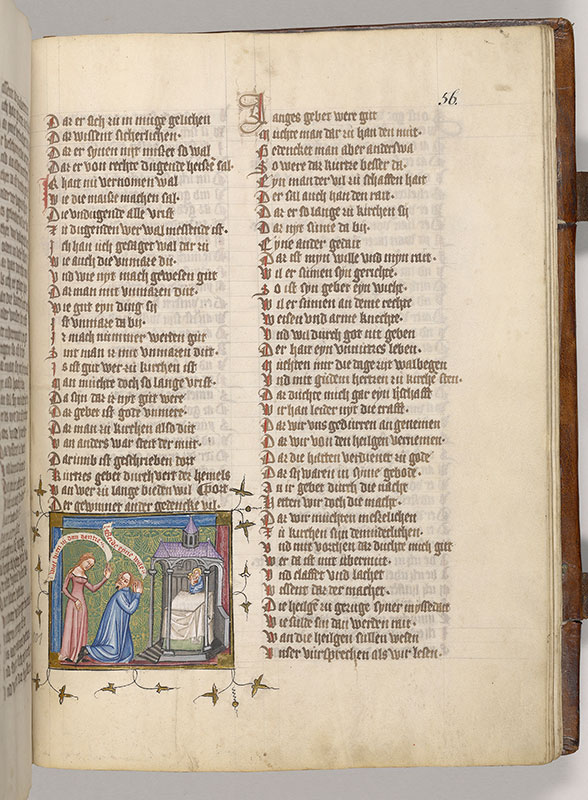 56.
Dar er sich zü in müge gelichen
Dar wissent sicherlichen.
Dar er synen nyt mistet so wal
Dar er von rechte dugende heisen sal.
Ir hait nü vernomen wal
Wie die masse machen sal.
Die undugende alle vrist
Zü dugenden wer wal messende ist.
Ich han uch gesaget wal dar zü
Wie auch die unmare düt.
Und wie nyt mach gewesen güt
Dar man mit unmaren düt.
Wie güt eyn ding sij
Ist unmare da bij.
Ir mach nümmer werden güt
Sint man ir mit unmaren düt.
Is ist güt wer zü kirchen ist
Man müchte doch so lange vrist.
Da syn dar ir nyt güt were
Dar gebet ist gode unmere.
Dar man zü kirchen also düt
Wan anders war steit der müt.
Darumb ist geschrieben dort
Kurtzes gebet durchvert der hemels
port
Wan wer zü lange bieden wil
Der gewinnet ander gedencke vil.
Langes gebet were güt
Müchte man dar zü han den müt.
Gedencket man aber anderswa
So were dar kurtze besser da.
Eyn man der vil zü schaffen hait
Der sal auch han den rait.
Dar er so lange zü kirchen sij
Dar nyt sünde da bij.
Eyne ander gedait
Dar ist myn wille und myn rait.
Wil er sümen syn gerichte.
So ist syn gebet eyn wicht.
Wil er sümen an deme rechte
Weisen und arme knechte.
Und wil durch got nit geben
Der hait eyn unnützes leben.
Müchten wir die dage nyt walbegen
Und mit güdem hertzen zü kirche sten.
Dar düchte mich gar eyn
Wir han leider nyt die crafft.
Dar wir uns gedürren an genemen
Dar wir von den heilgen vernemen.
Dar die hatten verdienet zü gode
Dar sij waren in syme gebode.
An ir gebet durch die nacht
Hetten wir doch die macht.
Dar wir müchten messelichen
Zü kirchen sin demüdelichen.
Und mit vorchten dar düchte mich güt
Wer da ist mit übermüt.
Und claffet und lachet
Wissent dar der machet.
Die heilgen zü gezüge syner myssedait
Wie sülde sin dan werden rait.
Wan die heilgen süllen wesen
Unser vürsprechen als wir lesen.